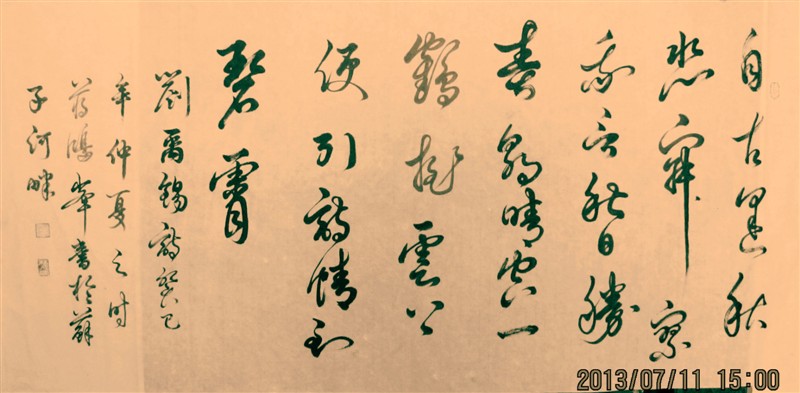 自古逢秋
悲寂寥
我言秋日勝
春朝晴空一
鶴排雲上
便引詩情到
碧霄
劉禹錫詩癸巳
年仲夏之時
蔣鴻書於蘇
子河畔
2013/07/11 15:00